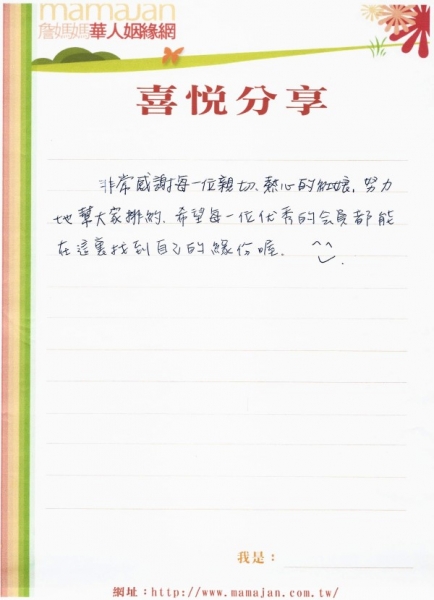 mamajan
詹媽媽華人姻緣網
喜悦分享
非常感謝每一位親切、熱心的紅娘，努力
地幫大家排約，希望每一位优秀的会員都能
在這裏找到自己的緣份喔. ^^
我是：
網址：http://www.mamajan.com.tw/